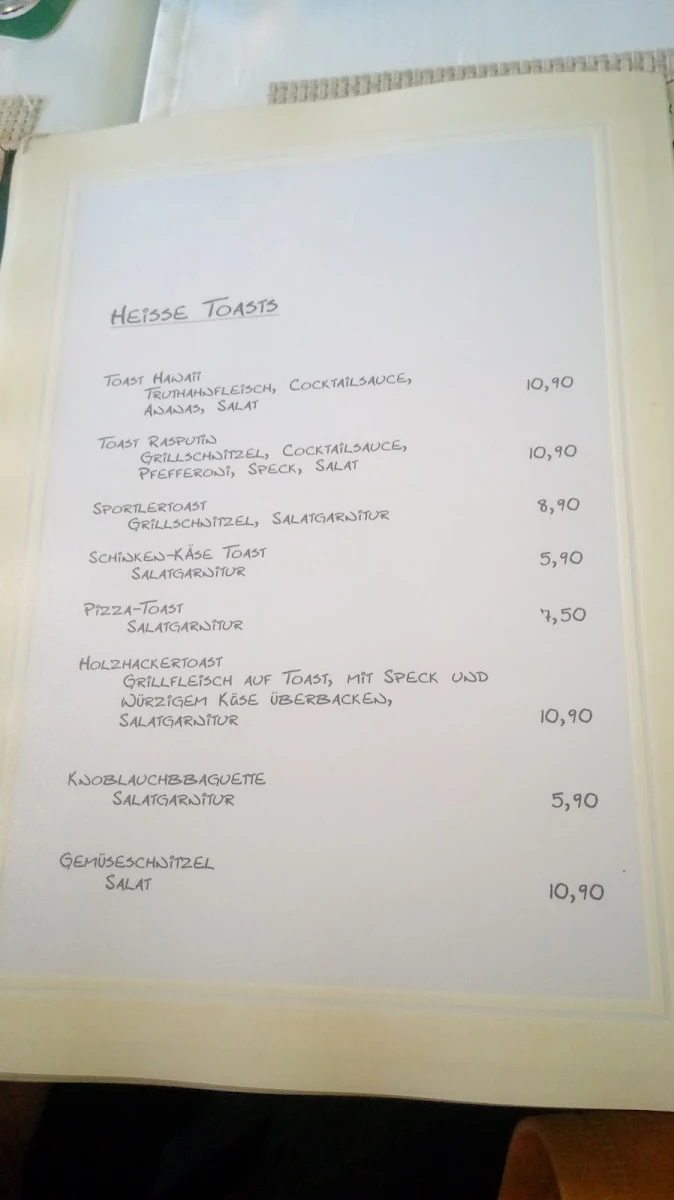 HEISSE TOASTS
TOAST HAWAII
TRUTHAHNFLEISCH, COCKTAILSAUCE, 10,90
ANANAS, SALAT
TOAST RASPUTIN
GRILLSCHNITZEL, COCKTAILSAUCE, 10,90
PFEFFERONI, SPECK, SALAT
SPORTLERTOAST 8,90
GRILLSCHNITZEL, SALATGARNITUR
SCHINKEN-KÄSE TOAST 5,90
SALATGARNITUR
PIZZA-TOAST 7,50
SALATGARNITUR
HOLZHACKERTOAST
GRILLFLEISCH AUF TOAST, MIT SPECK UND
WÜRZIGEM KÄSE ÜBERBACKEN,
SALATGARNITUR 10,90
KNOBLAUCHBBAGUETTE
SALATGARNITUR 5,90
GEMÜSESCHNITZEL
SALAT 10,90